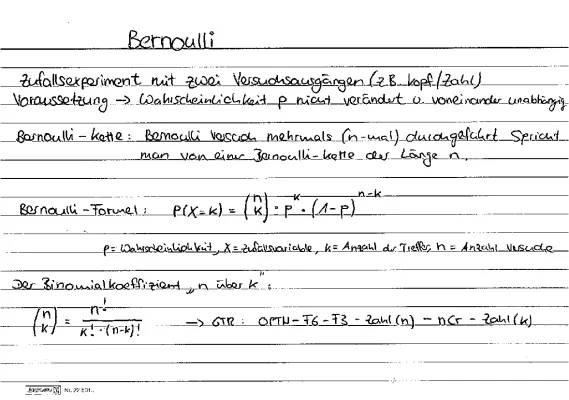 Bernoulli
Zufallsexperiment mit zwei Versuchsausgängen (z.B. Kopf/Zahl)
Voraussetzung → Wahrscheinlichkeit p nicht verändert u. voneinander unabhängig
Bernoulli-Kette: Bernoulli Versuch mehrmals (n-mal) durchgeführt Spricht
man von einer Bernoulli-Kette der Länge n.
Bernoulli-Formel: P(X=k) = (n k) · p^k · (1-p)^n-k
p = Wahrscheinlichkeit, X = Zufallsvariable, k = Anzahl der Treffer, n = Anzahl Versuche
Der Binomialkoeffizient „n über k":
(n k) = n! / k! · (n-k)! → GTR: OPTN - F6 - F3 - Zahl(n) - nCr - Zahl(k)